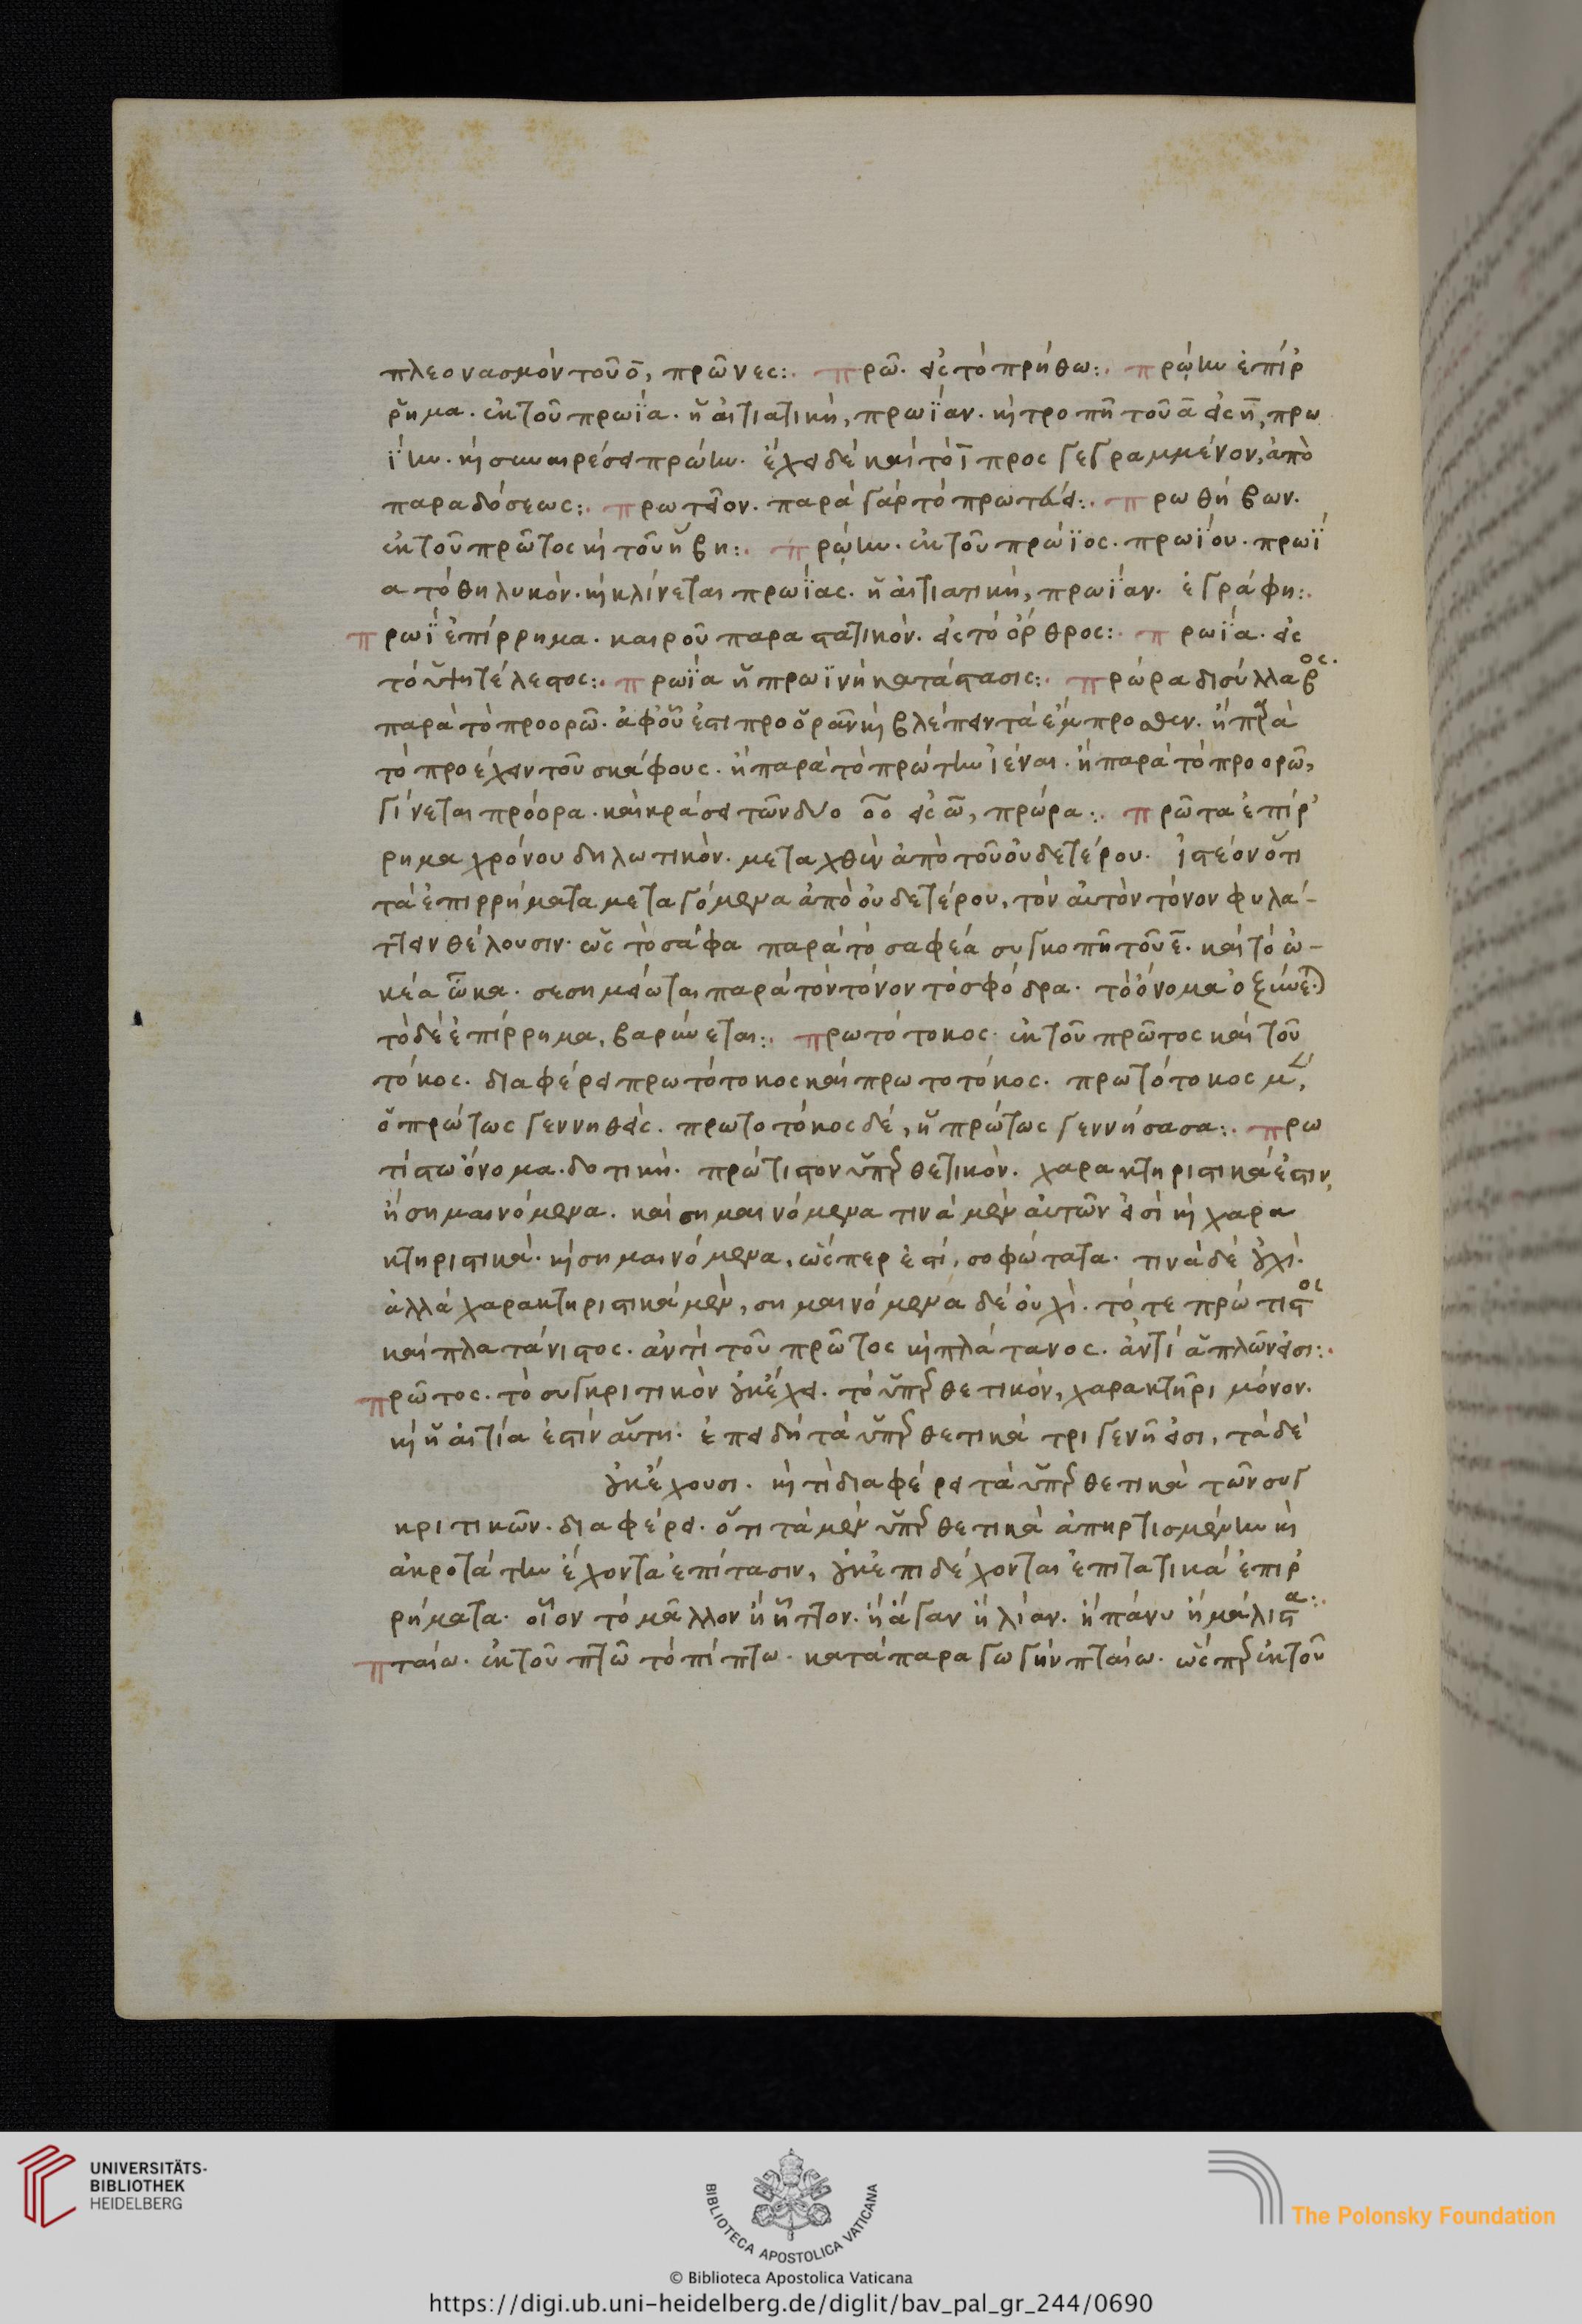 πλεονασμὸν τοῦ ο̄, πρῶνες:. πρῶ. εἰς τὸ πρήθω:. πρώϊην ἐπίρ
ρημα. ἐκ τοῦ πρωΐα. ἡ αἰτιατικὴ, πρωΐαν. κỳ τροπῇ τοῦ ᾱ εἰς η̄, πρω
ΐην. κỳ συναιρέσει πρώην. ἔχει δὲ καὶ τὸ ῑ προσγεγραμμένον, ἀπὸ
παραδόσεως:. πρωτεῖον. παρὰ γὰρ τὸ πρωτεύει:. πρωθήβων.
ἐκ τοῦ πρῶτος κỳ τοῦ ἥβη:. πρώην. ἐκ τοῦ πρώϊος. πρωΐου. πρωΐ
α τὸ θηλυκόν. κỳ κλίνεται πρωΐας. ἡ αἰτιατικὴ, πρωΐαν. ἐγράφη:.
πρωῒ ἐπίρρημα. καιροῦ παραστατικόν. εἰς τὸ ὄρθρος:. πρωΐα. εἰς
τὸ ὑψιτέλεστος:. πρωΐα ἡ πρωϊνὴ κατάστασις:. πρώρα δισύλλαβος.
παρὰ τὸ προορῶ. ἀφ' οὗ ἐστι προορᾶν κỳ βλέπειν τὰ ἔμπροσθεν. ἢ παρὰ
τὸ προέχειν τοῦ σκάφους. ἢ παρὰ τὸ πρώτην ἰέναι. ἢ παρὰ τὸ προορῶ,
γίνεται πρόορα. καὶ κράσει τῶν δύο ο̄ο̄ εἰς ω̄, πρώρα:. πρῶτα ἐπίρ
ρημα χρόνου δηλωτικόν. μεταχθὲν ἀπὸ τοῦ οὐδετέρου. ἰστέον ὅτι
τὰ ἐπιρρήματα μεταγόμενα ἀπὸ οὐδετέρου, τὸν αὐτὸν τόνον φυλά-
ττειν θέλουσιν. ὡς τὸ σάφα παρὰ τὸ σαφέα συγκοπῇ τοῦ ε̄. καὶ τὸ ὠ-
κέα ὦκα. σεσημείωται παρὰ τὸν τόνον τὸ σφόδρα. τὸ ὄνομα ὀξύνεται
τὸ δὲ ἐπίρρημα, βαρύνεται:. πρωτότοκος. ἐκ τοῦ πρῶτος καὶ τοῦ
τόκος. διαφέρει πρωτότοκος καὶ πρωτοτόκος. πρωτότοκος μὲν,
ὁ πρώτως γεννηθείς. πρωτοτόκος δὲ, ἡ πρώτως γεννήσασα:. πρω
τίστω ὄνομα. δοτική. πρώτιστον ὑπερθετικόν. χαρακτηριστικά ἐστιν,
ἢ σημαινόμενα. καὶ σημαινόμενα τινὰ μὲν αὐτῶν εἰσὶ κỳ χαρα
κτηριστικά. κỳ σημαινόμενα, ὥσπερ ἐστί, σοφώτατα. τινὰ δὲ οὐχί.
ἀλλὰ χαρακτηριστικὰ μὲν, σημαινόμενα δὲ οὐχὶ. τό τε πρώτιστος
καὶ πλατάνιστος. ἀντὶ τοῦ πρῶτος κỳ πλάτανος. ἀντὶ ἁπλῶν εἰσι:.
πρῶτος. τὸ συγκριτικὸν οὐκ ἔχει. τὸ ὑπερθετικὸν, χαρακτῆρι μόνον.
κỳ ἡ αἰτία ἐστὶν αὕτη. ἐπειδὴ τὰ ὑπερθετικὰ τριγενῆ εἰσι, τὰ δὲ
οὐκ ἔχουσι. κỳ τί διαφέρει τὰ ὑπερθετικὰ τῶν συγ
κριτικῶν. διαφέρει. ὅτι τὰ μὲν ὑπερθετικὰ ἀπηρτισμένην κỳ
ἀκροτάτην ἔχοντα ἐπίτασιν, οὐκ ἐπιδέχονται ἐπιτατικὰ ἐπιρ
ρήματα. οἷον τὸ μᾶλλον ἢ ἧττον. ἢ ἄγαν ἢ λίαν. ἢ πάνυ ἢ μάλιστα:.
πταίω. ἐκ τοῦ πτῶ τὸ πίπτω. κατὰ παραγωγὴν πταίω. ὥσπερ ἐκ τοῦ
UNIVERSITÄTS-
BIBLIOTHEK
HEIDELBERG
BIBLIOTECA APOSTOLICA VATICANA
The Polonsky Foundation
© Biblioteca Apostolica Vaticana
https://digi.ub.uni-heidelberg.de/diglit/bav_pal_gr_244/0690